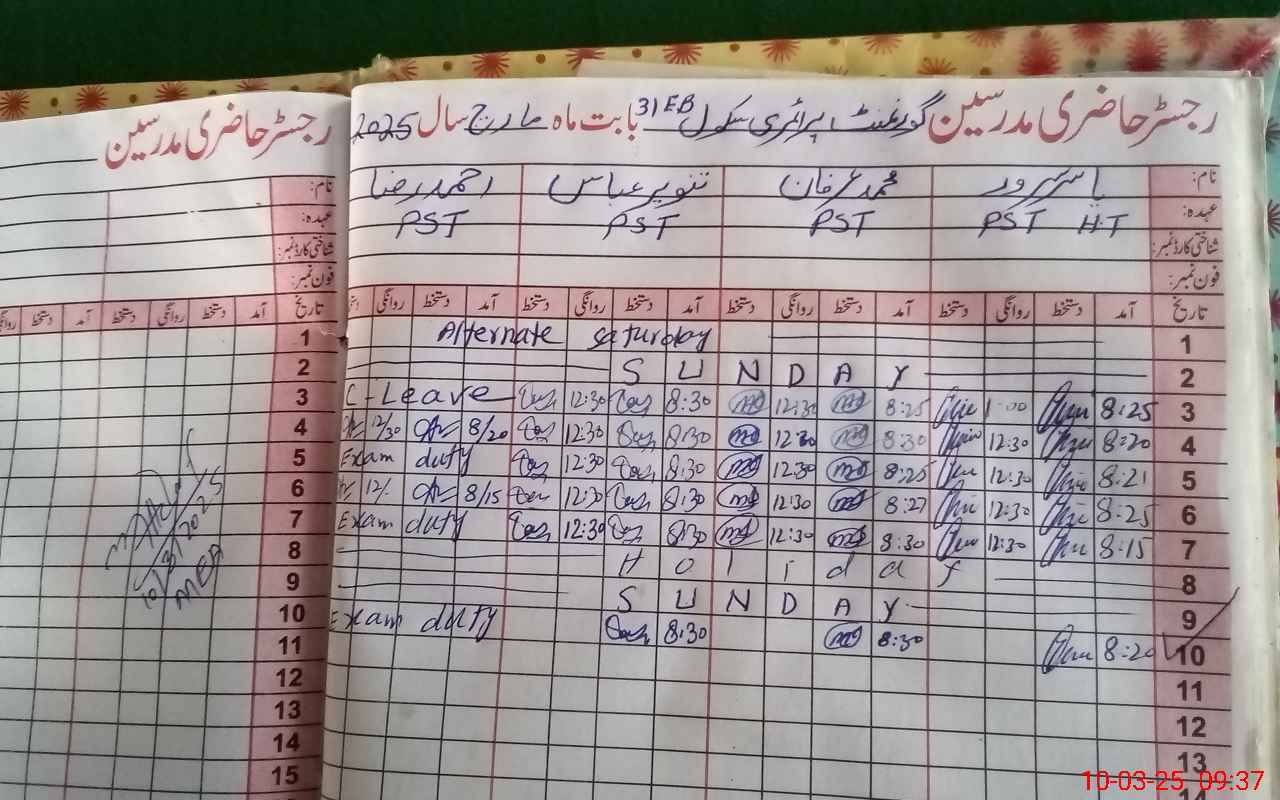 رجسٹر حاضری مدرسین گورنمنٹ پرائمری سکول 31 EB بابت ماہ مارچ سال 2025
نام: یاسر سرور محمد عرفان تنویر عباس احمد رضا
عہدہ: PST H.T PST PST PST
شناختی کارڈ نمبر:
فون نمبر:
تاریخ آمد دستخط روانگی دستخط آمد دستخط روانگی دستخط آمد دستخط روانگی دستخط آمد دستخط روانگی دستخط
Alternate Saturday 1
S U N D A Y 2
C-Leave 12:30 8:30 12:30 8:25 1:00 8:25 3
12/30 8/20 12:30 8:30 12:30 8:30 12:30 8:20 4
Exam duty 12:30 8:30 12:30 8:25 12:30 8:21 5
12/. 8/15 12:30 8:30 12:30 8:27 12:30 8:25 6
Exam duty 12:30 8:30 12:30 8:30 12:30 8:15 7
H o l i d a y 8
S U N D A Y 9
Exam duty 8:30 8:30 8:20 10
11
12
13
14
رجسٹر حاضری مدرسین
نام:
عہدہ:
شناختی کارڈ نمبر:
فون نمبر:
تاریخ آمد دستخط روانگی دستخط آمد دستخط روانگی
1
2
3
4
5
6
7
8
9
10
11
12
13
14
15
10/3/2025
MEA
10-03-25 09:37